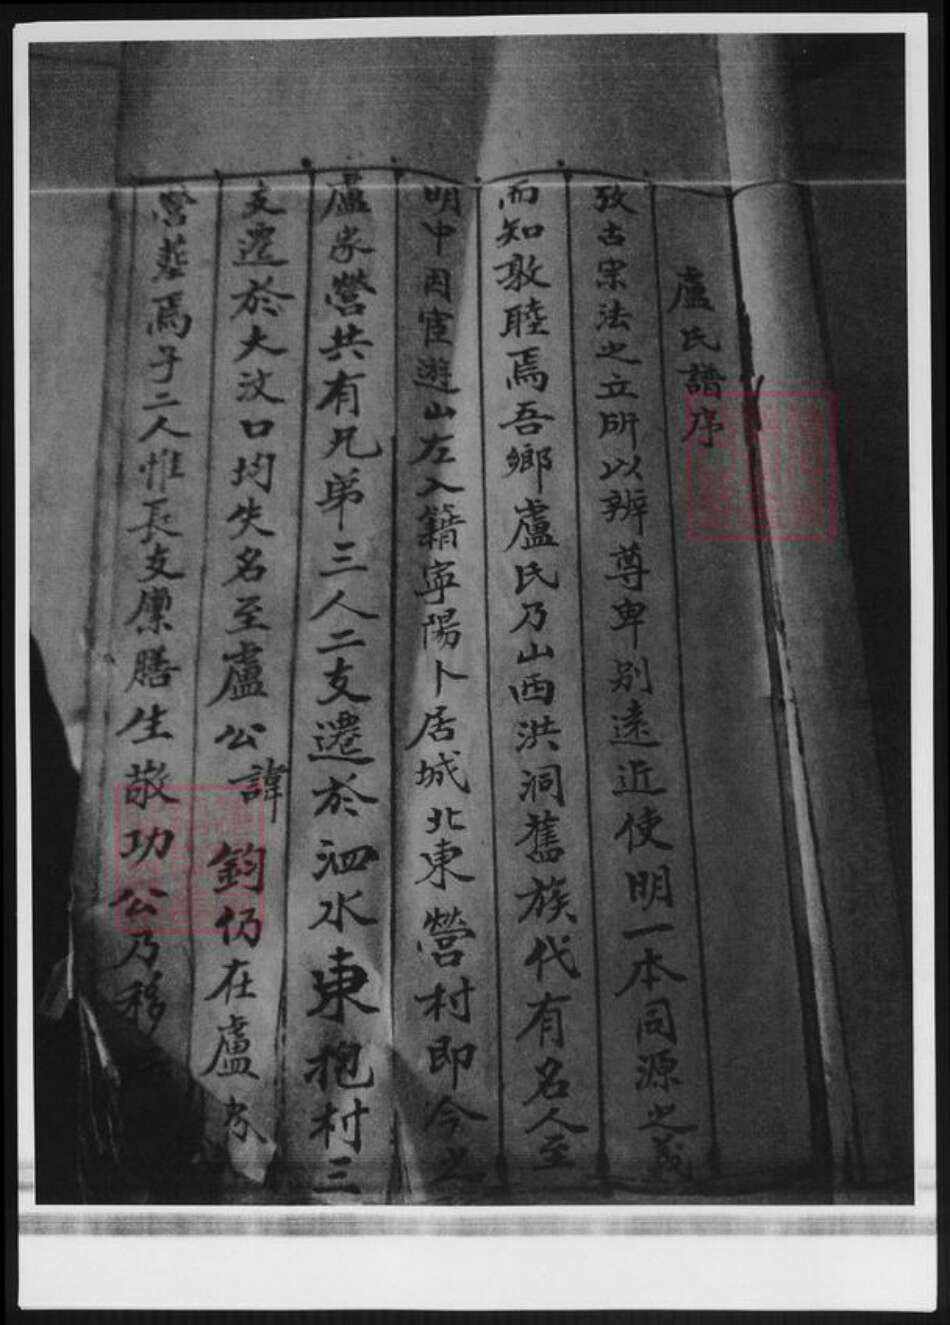 盧氏譜序
攷古宗法之立所以辨尊卑别遠近使明一本同源之義
而知敦睦焉吾鄉盧氏乃山西洪洞舊族代有名人至
明中因宦遊山左入籍寧陽卜居城北東營村即今之
盧家營共有兄弟三人二支遷於泗水東抱村三
支遷於大汶口均失名至盧公諱鈞仍在盧家
營塟焉子二人惟長支廩膳生敬功公乃移